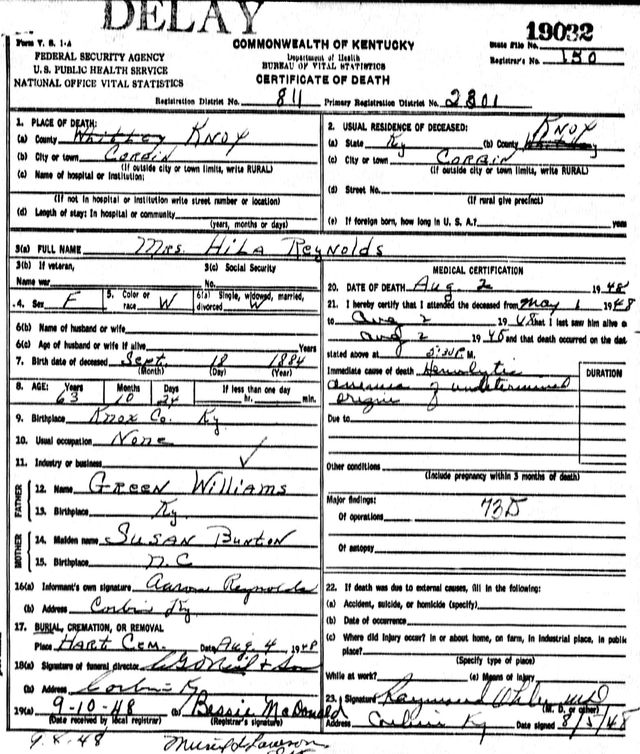 DELAY
19032
Form V. S. 1-A
COMMONWEALTH OF KENTUCKY
State File No.
FEDERAL SECURITY AGENCY
Department of Health
Registrar's No. 150
U. S. PUBLIC HEALTH SERVICE
BUREAU OF VITAL STATISTICS
NATIONAL OFFICE VITAL STATISTICS
CERTIFICATE OF DEATH
Registration District No. 811 Primary Registration District No. 2301
1. PLACE OF DEATH:
(a) County Whitley Knox
(b) City or town Corbin
(If outside city or town limits, write RURAL)
(c) Name of hospital or institution:
(If not in hospital or institution write street number or location)
(d) Length of stay: In hospital or community
(years, months or days)
2. USUAL RESIDENCE OF DECEASED:
Knox
(a) State Ky (b) County
(c) City or town Corbin
(If outside city or town limits, write RURAL)
(d) Street No.
(If rural give precinct)
(e) If foreign born, how long in U. S. A.? years
3(a) FULL NAME Mrs. Hila Reynolds
3(b) If veteran, 3(c) Social Security
Name war No.
4. Sex F 5. Color or race W 6(a) Single, widowed, married, divorced W
6(b) Name of husband or wife
6(c) Age of husband or wife if alive Years
7. Birth date of deceased Sept. 18 1884
(Month) (Day) (Year)
8. AGE: Years Months Days If less than one day
63 10 24 hr. min.
9. Birthplace Knox Co. Ky
10. Usual occupation None
11. Industry or business ✓
FATHER
12. Name Green Williams
13. Birthplace Ky
MOTHER
14. Maiden name Susan Bunton
15. Birthplace N.C
16(a) Informant's own signature Aaron Reynolds
(b) Address Corbin Ky
17. BURIAL, CREMATION, OR REMOVAL
Place Hart Cem. Date Aug. 4 1948
18(a) Signature of funeral director & Son
(b) Address Corbin Ky
19(a) 9-10-48 (b) Bessie McDonald
(Date received by local registrar) (Registrar's signature)
9-8-48
MEDICAL CERTIFICATION
20. DATE OF DEATH Aug 2 1948
21. I hereby certify that I attended the deceased from May 1 1948
to Aug 2 1948 that I last saw him alive o
Aug 2 1948 and that death occurred on the dat
stated above at 5:30 P. M.
Immediate cause of death Hemolytic
DURATION
anemia of undetermined
origin
Due to
Other conditions
(Include pregnancy within 3 months of death)
Major findings:
Of operations 73D
Of autopsy
22. If death was due to external causes, fill in the following:
(a) Accident, suicide, or homicide (specify)
(b) Date of occurrence
(c) Where did injury occur? In or about home, on farm, in industrial place, in public
place?
(Specify type of place)
While at work? (e) Means of injury
23. Signature Raymond MD
(M. D. or other)
Address Corbin Ky Date signed 8/5/48